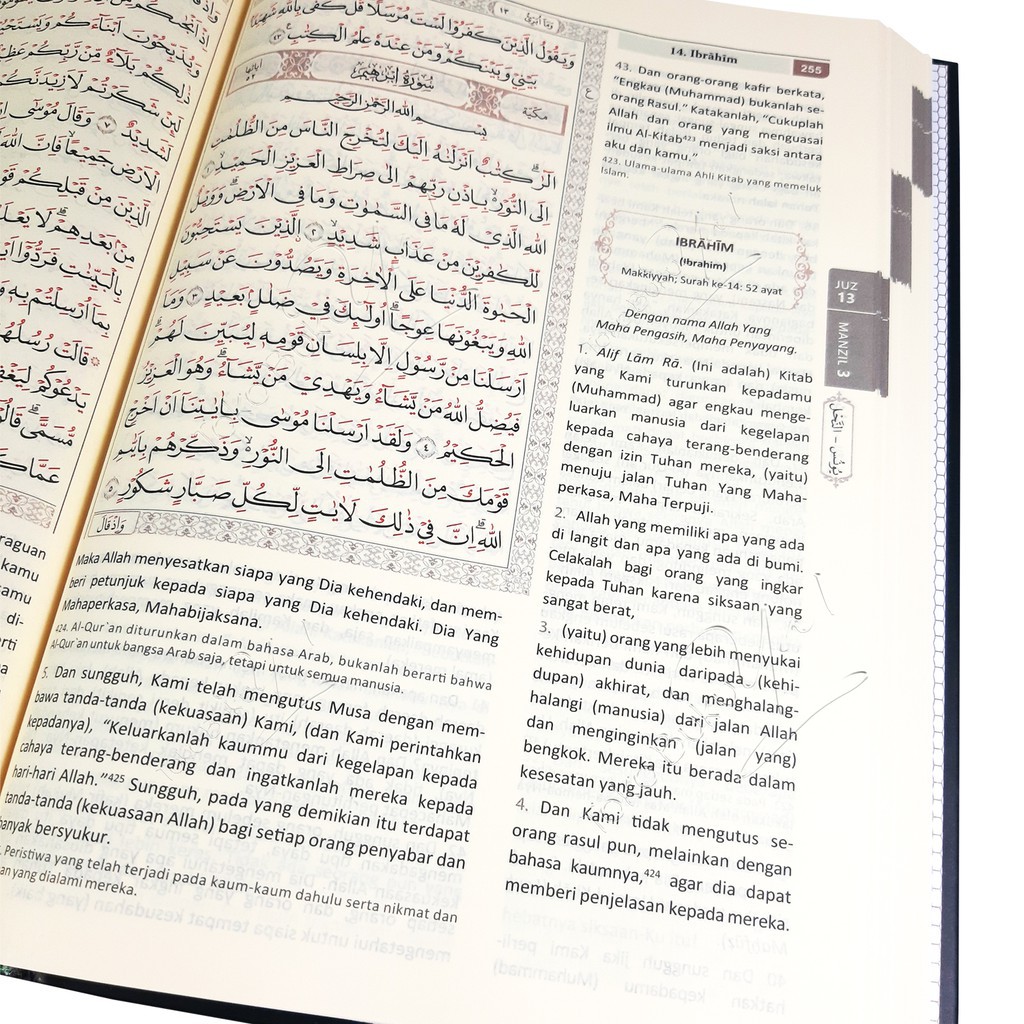 وَمَآ اُبَرِّئُ ١٣
14. Ibrāhīm 255
وَيَقُوْلُ الَّذِيْنَ كَفَرُوْا لَسْتَ مُرْسَلًاۗ قُلْ كَفٰى بِاللّٰهِ شَهِيْدًاۢ
بَيْنِيْ وَبَيْنَكُمْۙ وَمَنْ عِنْدَهٗ عِلْمُ الْكِتٰبِ ࣖ ٤٣
سُوْرَةُ اِبْرٰهِيْمَ
مكية
بِسْمِ اللّٰهِ الرَّحْمٰنِ الرَّحِيْمِ
الۤرٰ ۗ كِتٰبٌ اَنْزَلْنٰهُ اِلَيْكَ لِتُخْرِجَ النَّاسَ مِنَ الظُّلُمٰتِ
اِلَى النُّوْرِ ەۙ بِاِذْنِ رَبِّهِمْ اِلٰى صِرَاطِ الْعَزِيْزِ الْحَمِيْدِۙ ١
اللّٰهِ الَّذِيْ لَهٗ مَا فِى السَّمٰوٰتِ وَمَا فِى الْاَرْضِۗ وَوَيْلٌ
لِّلْكٰفِرِيْنَ مِنْ عَذَابٍ شَدِيْدٍۙ ٢ ۨالَّذِيْنَ يَسْتَحِبُّوْنَ
الْحَيٰوةَ الدُّنْيَا عَلَى الْاٰخِرَةِ وَيَصُدُّوْنَ عَنْ سَبِيْلِ
اللّٰهِ وَيَبْغُوْنَهَا عِوَجًاۗ اُولٰۤىِٕكَ فِيْ ضَلٰلٍۢ بَعِيْدٍ ٣ وَمَآ
اَرْسَلْنَا مِنْ رَّسُوْلٍ اِلَّا بِلِسَانِ قَوْمِهٖ لِيُبَيِّنَ لَهُمْۗ
فَيُضِلُّ اللّٰهُ مَنْ يَّشَاۤءُ وَيَهْدِيْ مَنْ يَّشَاۤءُۗ وَهُوَ الْعَزِيْزُ
الْحَكِيْمُ ٤ وَلَقَدْ اَرْسَلْنَا مُوْسٰى بِاٰيٰتِنَآ اَنْ اَخْرِجْ
قَوْمَكَ مِنَ الظُّلُمٰتِ اِلَى النُّوْرِ ەۙ وَذَكِّرْهُمْ بِاَيّٰىمِ
اللّٰهِ ۗاِنَّ فِيْ ذٰلِكَ لَاٰيٰتٍ لِّكُلِّ صَبَّارٍ شَكُوْرٍ ٥
وَاِذْ قَالَ
43. Dan orang-orang kafir berkata,
"Engkau (Muhammad) bukanlah se-
orang Rasul." Katakanlah, "Cukuplah
Allah dan orang yang menguasai
ilmu Al-Kitab⁴²³ menjadi saksi antara
aku dan kamu."
423. Ulama-ulama Ahli Kitab yang memeluk
Islam.
IBRĀHĪM
(Ibrahim)
Makkiyyah; Surah ke-14: 52 ayat
Dengan nama Allah Yang
Maha Pengasih, Maha Penyayang.
1. Alif Lām Rā. (Ini adalah) Kitab
yang Kami turunkan kepadamu
(Muhammad) agar engkau menge-
luarkan manusia dari kegelapan
kepada cahaya terang-benderang
dengan izin Tuhan mereka, (yaitu)
menuju jalan Tuhan Yang Maha-
perkasa, Maha Terpuji.
2. Allah yang memiliki apa yang ada
di langit dan apa yang ada di bumi.
Celakalah bagi orang yang ingkar
kepada Tuhan karena siksaan yang
sangat berat,
3. (yaitu) orang yang lebih menyukai
kehidupan dunia daripada (kehi-
dupan) akhirat, dan menghalang-
halangi (manusia) dari jalan Allah
dan menginginkan (jalan yang)
bengkok. Mereka itu berada dalam
kesesatan yang jauh.
4. Dan Kami tidak mengutus se-
orang rasul pun, melainkan dengan
bahasa kaumnya,⁴²⁴ agar dia dapat
memberi penjelasan kepada mereka.
Maka Allah menyesatkan siapa yang Dia kehendaki, dan mem-
beri petunjuk kepada siapa yang Dia kehendaki. Dia Yang
Mahaperkasa, Mahabijaksana.
424. Al-Qur`an diturunkan dalam bahasa Arab, bukanlah berarti bahwa
Al-Qur`an untuk bangsa Arab saja, tetapi untuk semua manusia.
5. Dan sungguh, Kami telah mengutus Musa dengan mem-
bawa tanda-tanda (kekuasaan) Kami, (dan Kami perintahkan
kepadanya), "Keluarkanlah kaummu dari kegelapan kepada
cahaya terang-benderang dan ingatkanlah mereka kepada
hari-hari Allah."⁴²⁵ Sungguh, pada yang demikian itu terdapat
tanda-tanda (kekuasaan Allah) bagi setiap orang penyabar dan
banyak bersyukur.
Peristiwa yang telah terjadi pada kaum-kaum dahulu serta nikmat dan
yang dialami mereka.
JUZ
13
MANZIL 3
يُوْنُس - النَّحْل